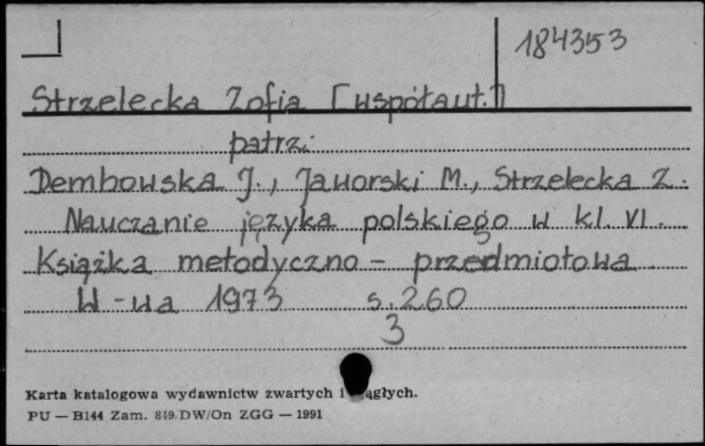 184353
Strzelecka Zofia [współaut.]
patrz:
Dembowska J., Jaworski M., Strzelecka Z.
Nauczanie języka polskiego w kl. VI.
Książka metodyczno - przedmiotowa
W-wa 1973 s. 260
3
Karta katalogowa wydawnictw zwartych i
PU — B144 Zam. 849.DW/On ZGG — 1991